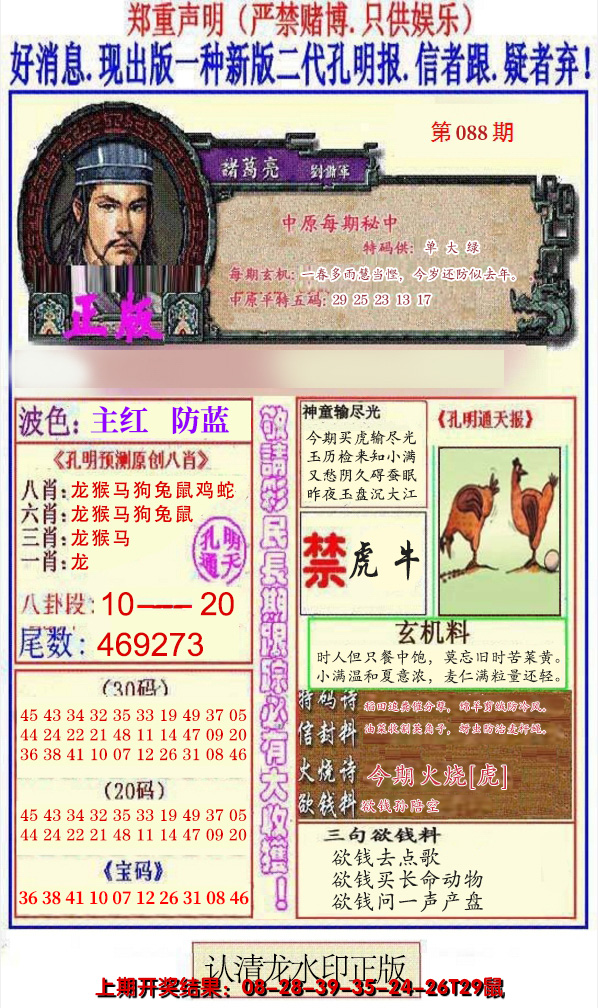 郑重声明（严禁赌博.只供娱乐）
好消息.现出版一种新版二代孔明报.信者跟.疑者弃！
第088期
諸葛亮 劉備軍
中原每期秘中
特码供：单 大 绿
每期玄机：一春多雨慧当悭，今岁还防似去年。
中原平特五码：29 25 23 13 17
正版
波色：主红 防蓝
《孔明预测原创八肖》
八肖：龙猴马狗兔鼠鸡蛇
六肖：龙猴马狗兔鼠
三肖：龙猴马
一肖：龙
孔明
通天
八卦段：10——20
尾数：469273
（30码）
45 43 34 32 35 33 19 49 37 05
44 24 22 21 48 11 14 47 09 20
36 38 41 10 07 12 26 31 08 46
（20码）
45 43 34 32 35 33 19 49 37 05
44 24 22 21 48 11 14 47 09 20
《宝码》
36 38 41 10 07 12 26 31 08 46
敬請彩民長期跟踪必有大收獲！
神童输尽光
今期买虎输尽光
玉历检来知小满
又愁阴久碍蚕眠
昨夜玉盘沉大江
《孔明通天报》
禁 虎 牛
玄机料
时人但只餐中饱，莫忘旧时苦菜黄。
小满温和夏意浓，麦仁满粒量还轻。
特码诗
信封料
火烧诗 今期火烧[虎]
欲钱料 欲钱孙悟空
三句欲钱料
欲钱去点歌
欲钱买长命动物
欲钱问一声产盘
认清龙水印正版
上期开奖结果：08-28-39-35-24-26T29鼠